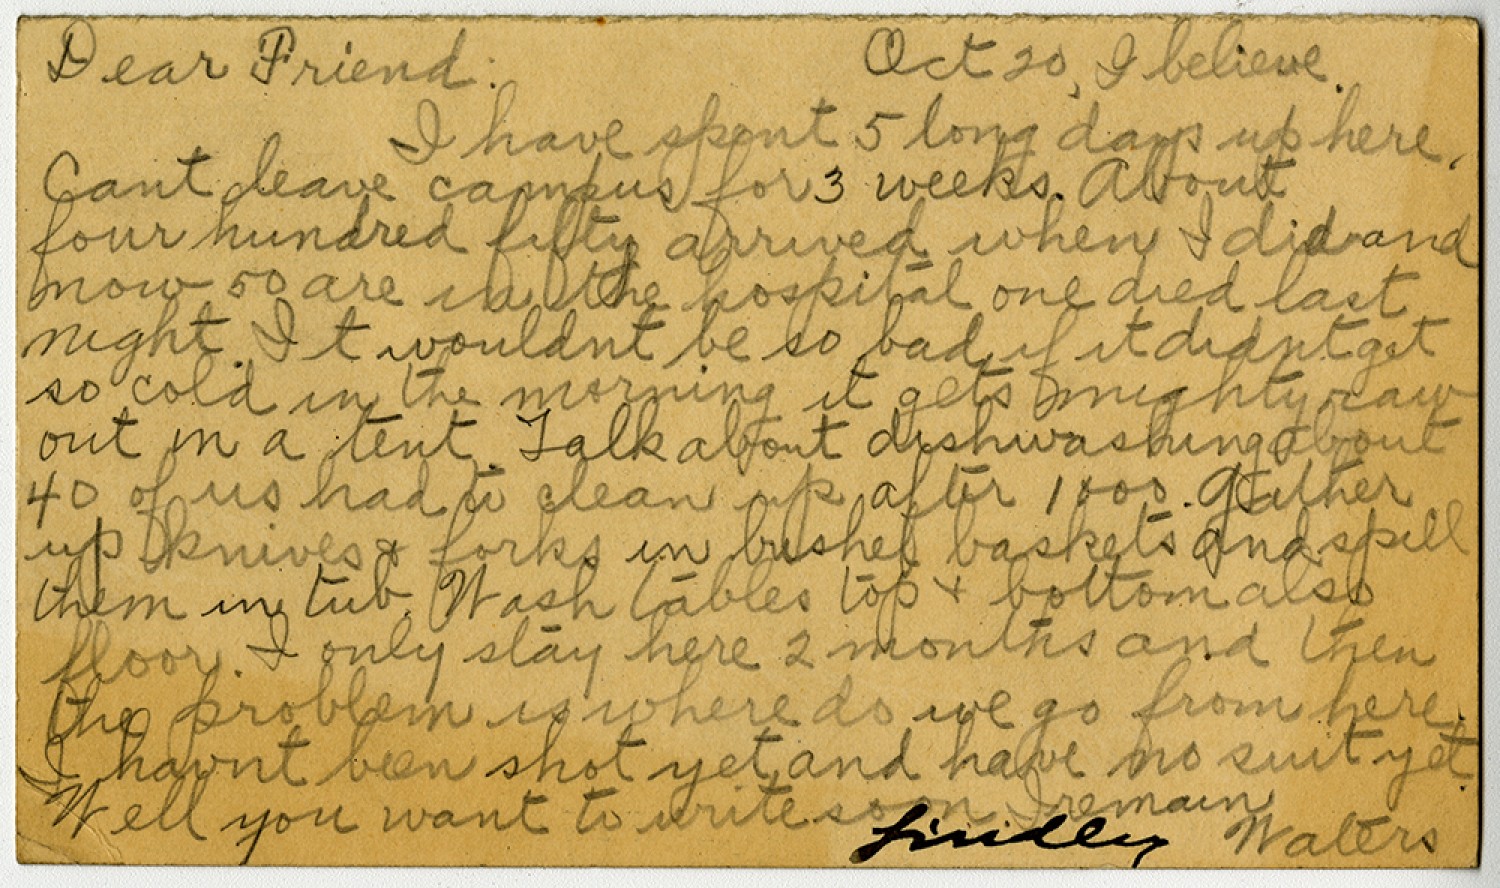 Dear Friend: Oct 20, I believe.
I have spent 5 long days up here.
Cant leave campus for 3 weeks. About
four hundred fifty arrived when I did and
now 50 are in the hospital one died last
night. It wouldnt be so bad if it didnt get
so cold in the morning it gets mighty raw
out in a tent. Talk about dishwashing about
40 of us had to clean up after 1000. Gather
up knives & forks in bushel baskets and spill
them in tub. Wash tables top & bottom also
floor. I only stay here 2 months and then
the problem is where do we go from here.
I havnt been shot yet, and have no suit yet.
Well you want to write soon I remain
Lindley Waters